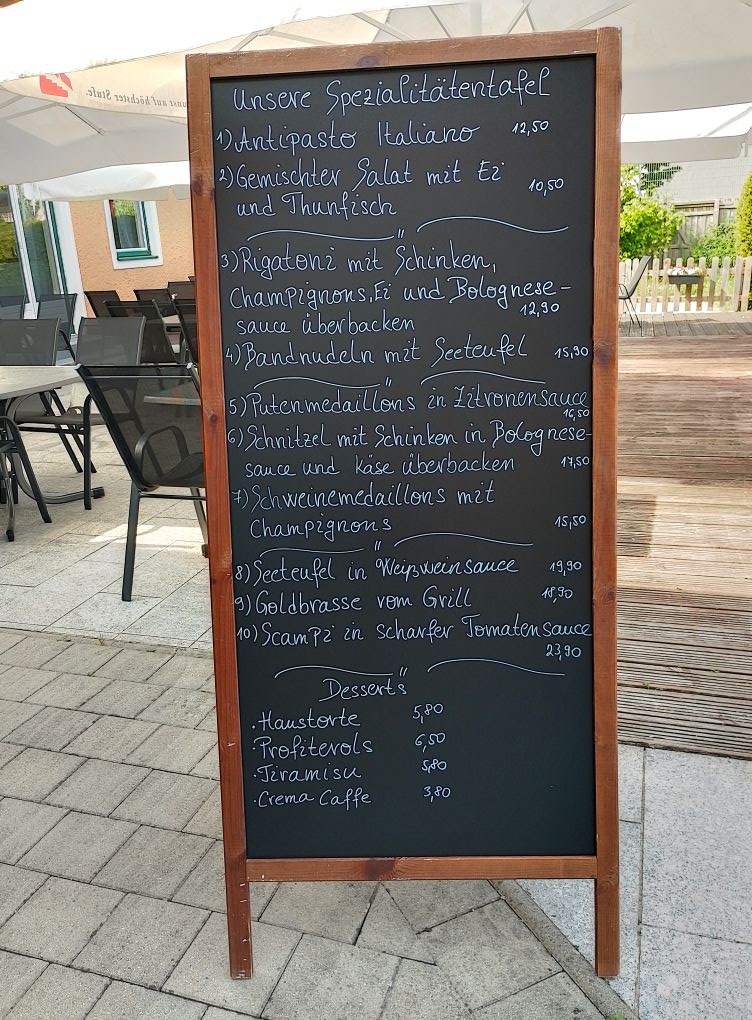 unst auf höchster Stufe.
Unsere Spezialitätentafel
1) Antipasto Italiano 12,50
2) Gemischter Salat mit Ei
und Thunfisch 10,50
"
3) Rigatoni mit Schinken,
Champignons, Ei und Bolognese-
sauce überbacken 12,90
4) Bandnudeln mit Seeteufel 15,90
"
5) Putenmedaillons in Zitronensauce
16,50
6) Schnitzel mit Schinken in Bolognese-
sauce und Käse überbacken 17,50
7) Schweinemedaillons mit
Champignons 15,50
"
8) Seeteufel in Weißweinsauce 19,90
9) Goldbrasse vom Grill 18,90
10) Scampi in scharfer Tomatensauce
23,90
"
Desserts
.Haustorte 5,80
.Profiterols 6,50
.Tiramisu 5,80
.Crema Caffe 3,80